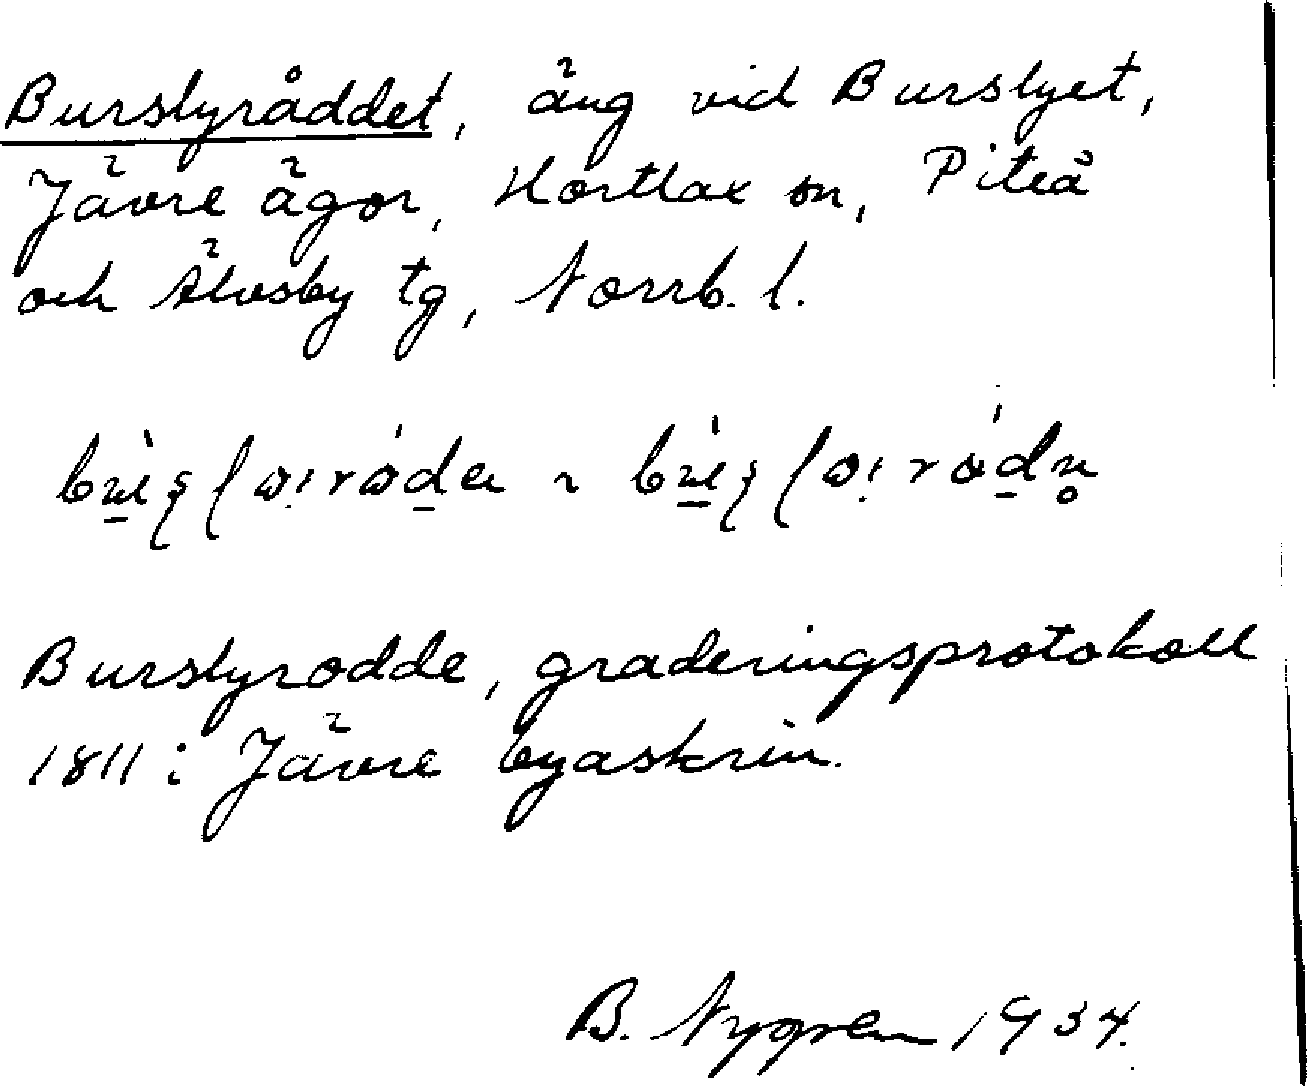 Burslyråddet, äng vid Burslyet,
Jävre ägor, Hortlax sn, Piteå
och Älvsby tg, Norrb. l.
Burslyrodde, graderingsprotokoll
1811 i Jävre byaskrin.
B. Nygren 1934.